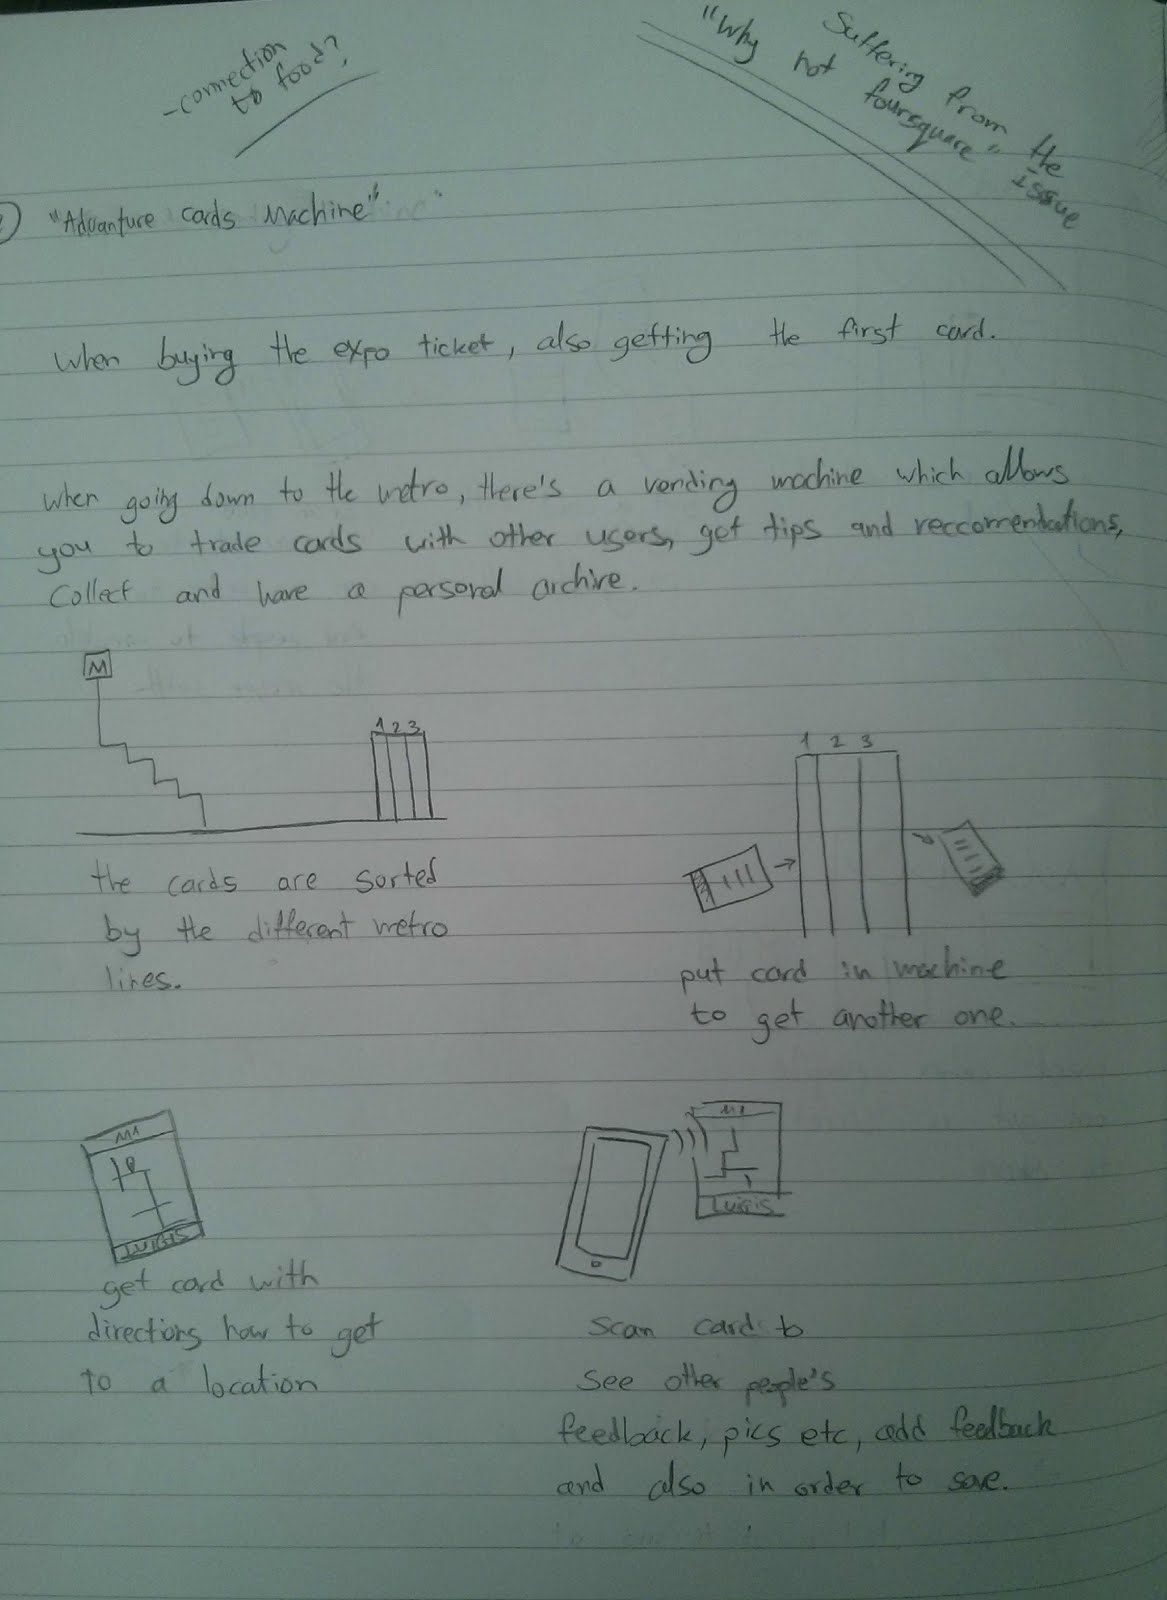 -connection
to food?
Suffering from the issue
"Why not
foursquare"
"Advanture cards Machine"
When buying the expo ticket, also getting the first card.
When going down to the metro, there's a vending machine which allows
you to trade cards with other users, get tips and reccomentations,
Collect and have a personal archive.
M
1 2 3
1 2 3
the cards are sorted
by the different metro
lines.
put card in machine
to get another one.
M1
LUIGIS
M1
LUIGIS
get card with
directions how to get
to a location
Scan card to
see other people's
feedback, pics etc, add feedback
and also in order to save.